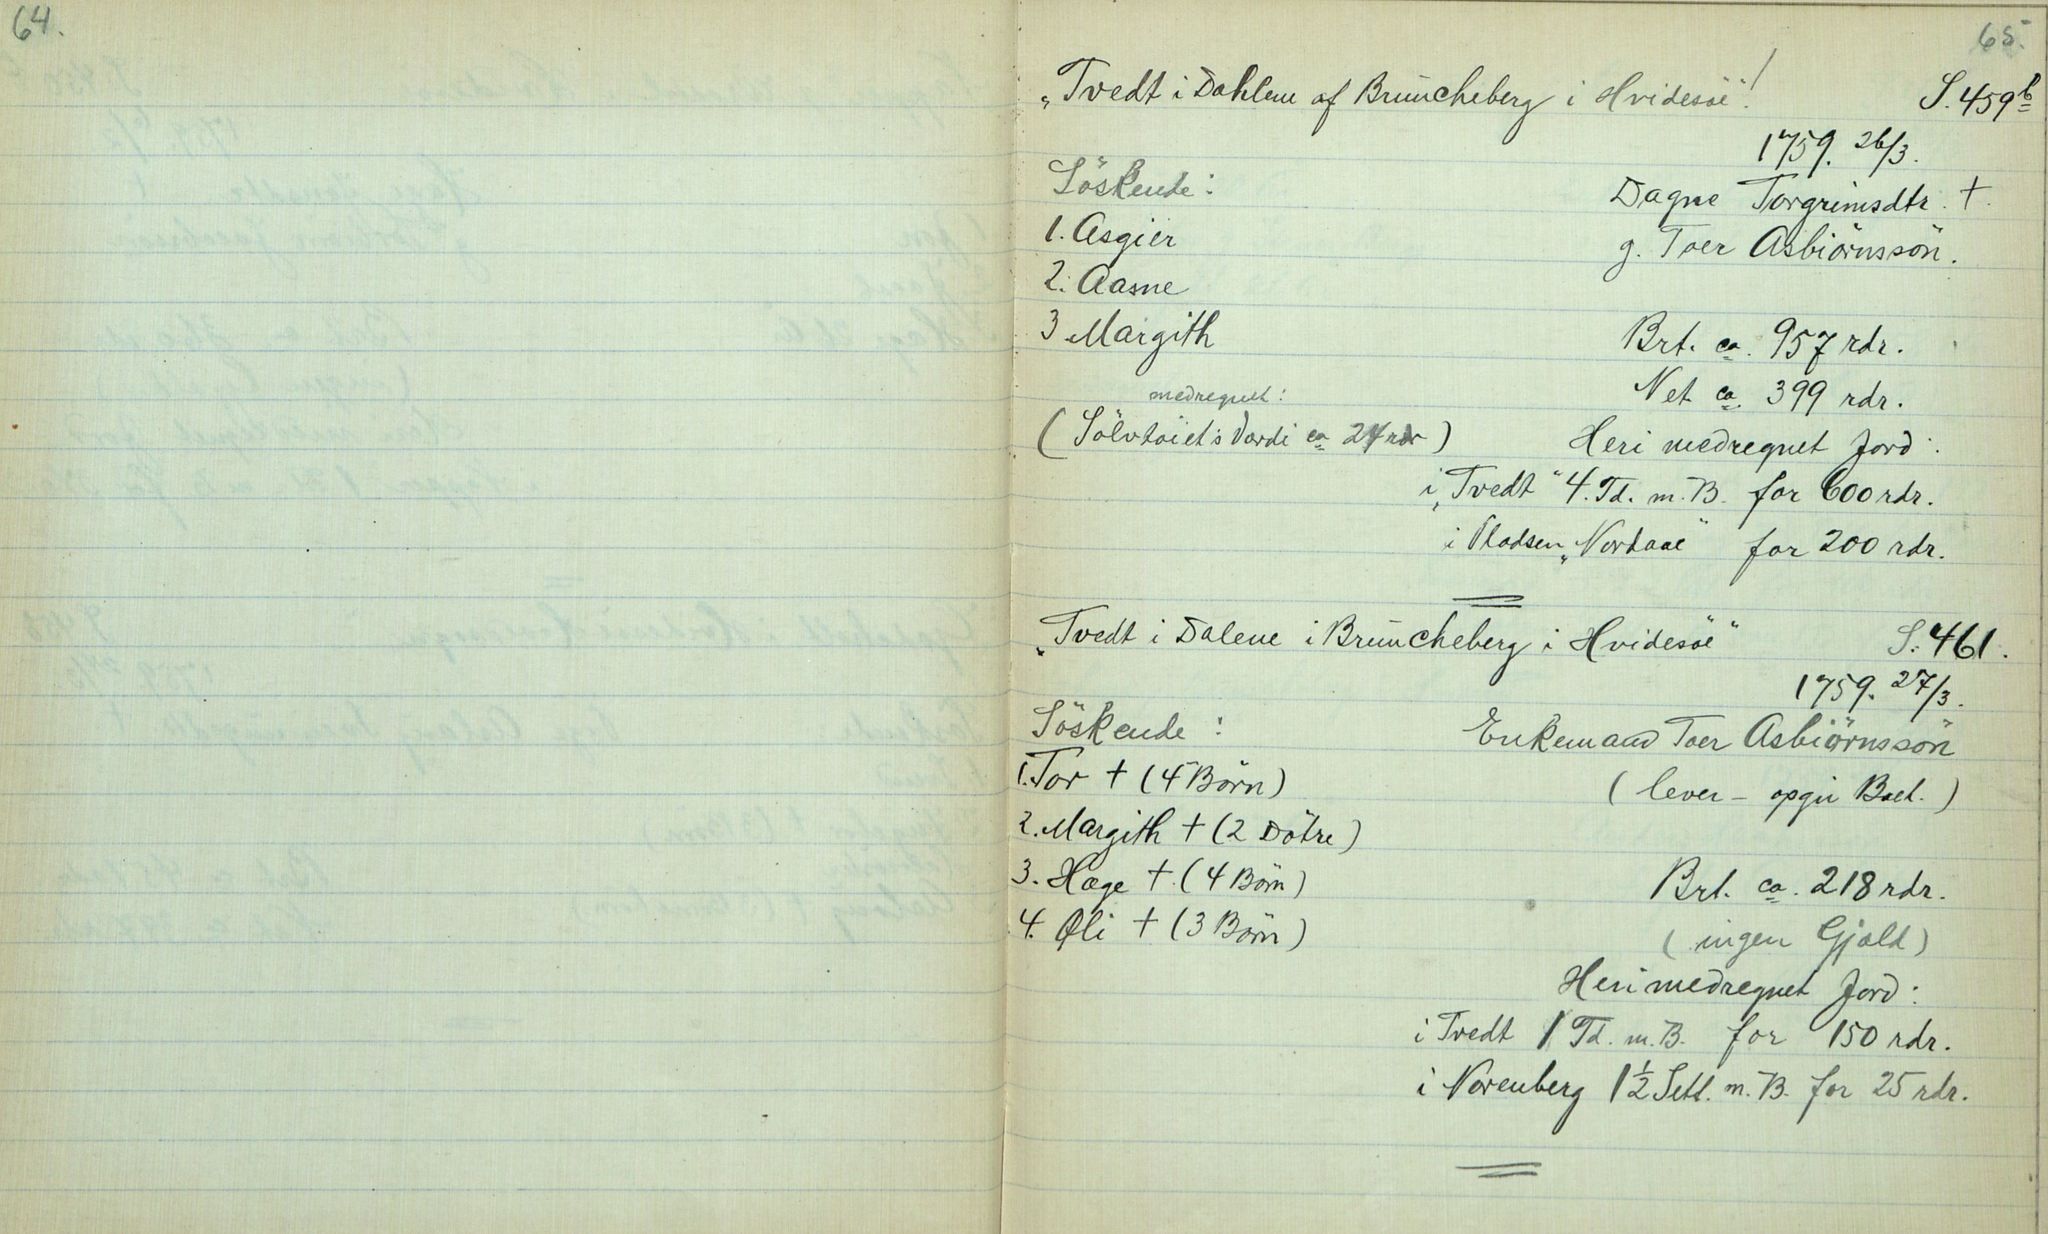 64.
65.
"Tvedt i Dahlene af Brūncheberg i Hvidesöe"!
S. 459b
1759. 26/3.
Söskende:
Dagne Torgrimsdtr. †.
1. Asgier
g. Toer Asbiörnssön.
2. Aasne
3. Margith
Brt. ca. 957 rdr.
Net ca. 399 rdr.
medregnet:
(Sölvtöiet's Værdi ca 24 rdr)
Heri medregnet Jord:
i "Tvedt" 4. Td. m. B. for 600 rdr.
i Pladsen "Nortaae" for 200 rdr.
"Tvedt i Dalene i Brūncheberg i Hvidesöe"
S. 461.
1759. 27/3.
Söskende:
Enkemand Toer Asbiörnssön
1. Tor † (4 Börn)
(lever - opgir Boet.)
2. Margith † (2 Dötre)
3. Hæge †. (4 Börn)
Brt. ca. 218 rdr.
4. Oli † (3 Börn)
(ingen Gjæld)
Heri medregnet Jord:
i Tvedt 1 Td. m. B. for 150 rdr.
i Norenberg 1½ Setl. m. B. for 25 rdr.